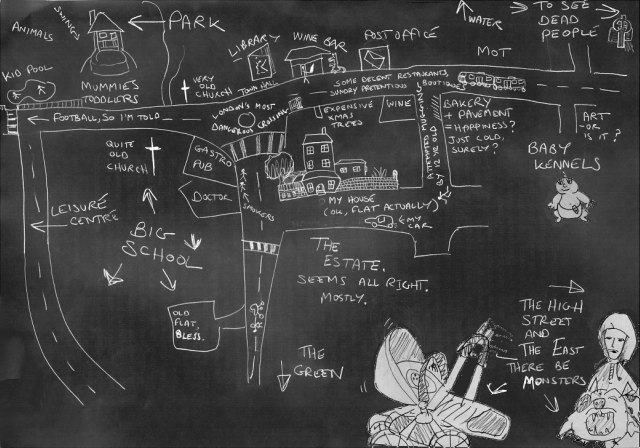 ANIMALS
SWINGS
PARK
KID POOL
MUMMIES
TODDLERS
VERY
OLD
CHURCH
LIBRARY
TOWN HALL
WINE BAR
POST OFFICE
WATER
TO SEE
DEAD
PEOPLE
MOT
SOME DECENT RESTAURANTS,
SUNDRY PRETENTIOUS BOUTIQUES
FOOTBALL, SO I'M TOLD
LONDON'S MOST
DANGEROUS CROSSING
EXPENSIVE
XMAS
TREES
WINE
ATTEMPTED MUGGING
BY 12 YR OLD
BAKERY
+ PAVEMENT
= HAPPINESS?
JUST COLD,
SURELY?
ART
-OR
IS IT?
QUITE
OLD
CHURCH
GASTRO
PUB
DOCTOR
SMOKERS
MY HOUSE
(OK, FLAT ACTUALLY)
MY
CAR
BABY
KENNELS
LEISURE
CENTRE
BIG
SCHOOL
THE
ESTATE.
SEEMS ALL RIGHT.
MOSTLY.
OLD
FLAT,
BLESS.
THE
GREEN
THE HIGH
STREET
AND
THE EAST
THERE BE
MONSTERS